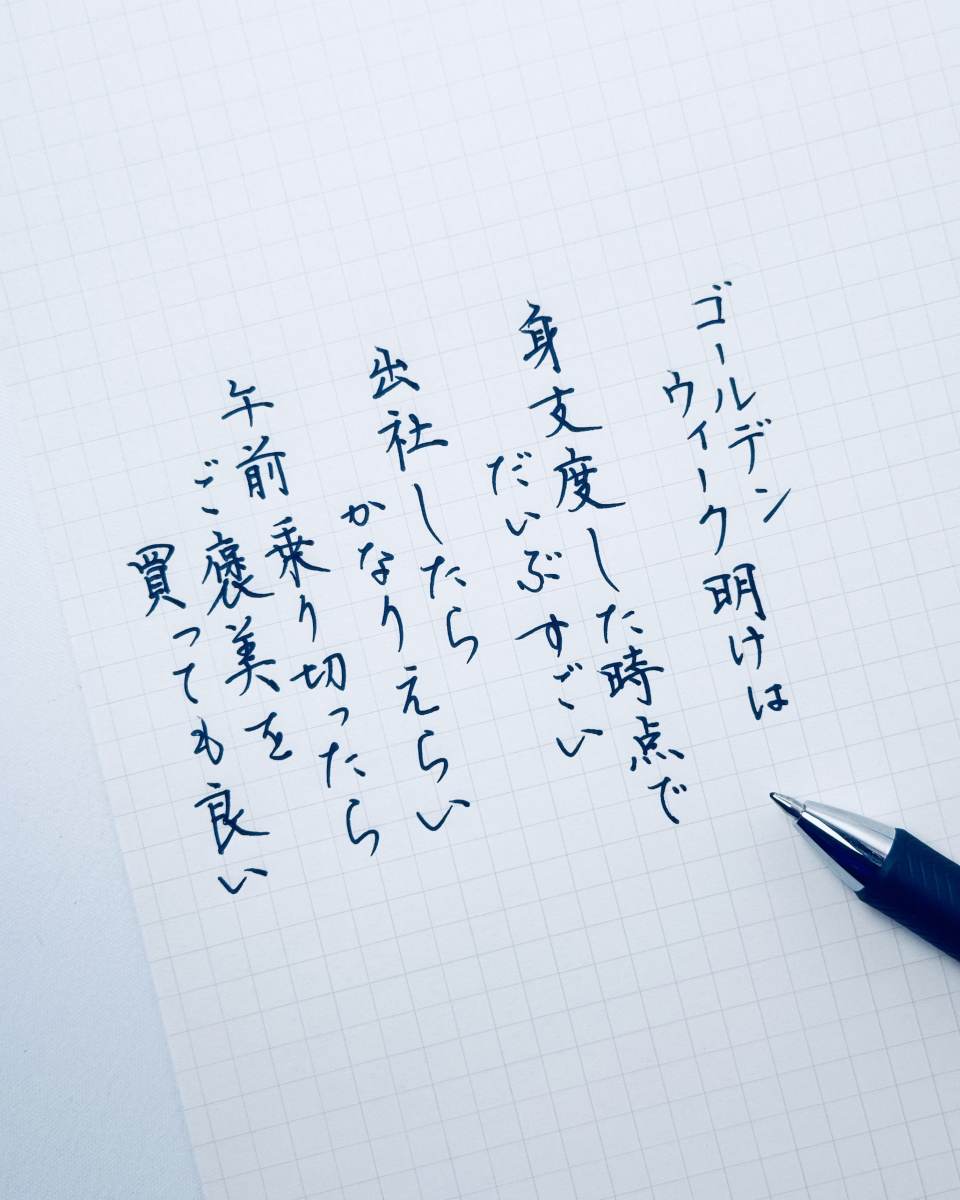 ゴールデン
ウィーク明けは
身支度した時点で
だいぶすごい
出社したら
かなりえらい
午前乗り切ったら
ご褒美を
買っても良い